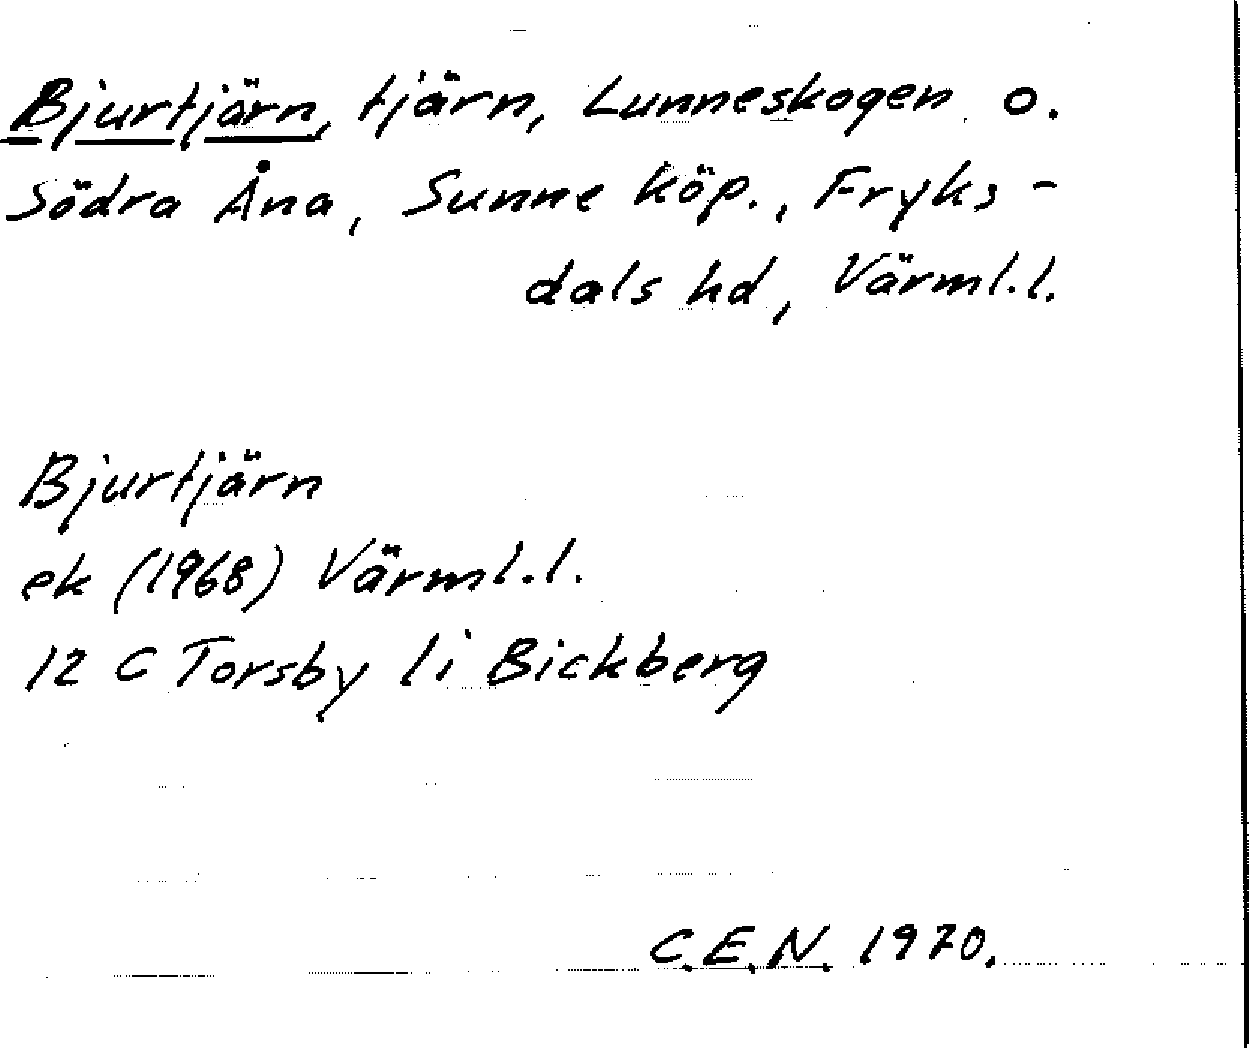 Bjurtjärn, tjärn, Lunneskogen o.
Södra Åna, Sunne köp., Fryks-
dals hd, Värml.l.
Bjurtjärn
ek (1968) Värml.l.
12 C Torsby li Bickberg
C.E.N. 1970.